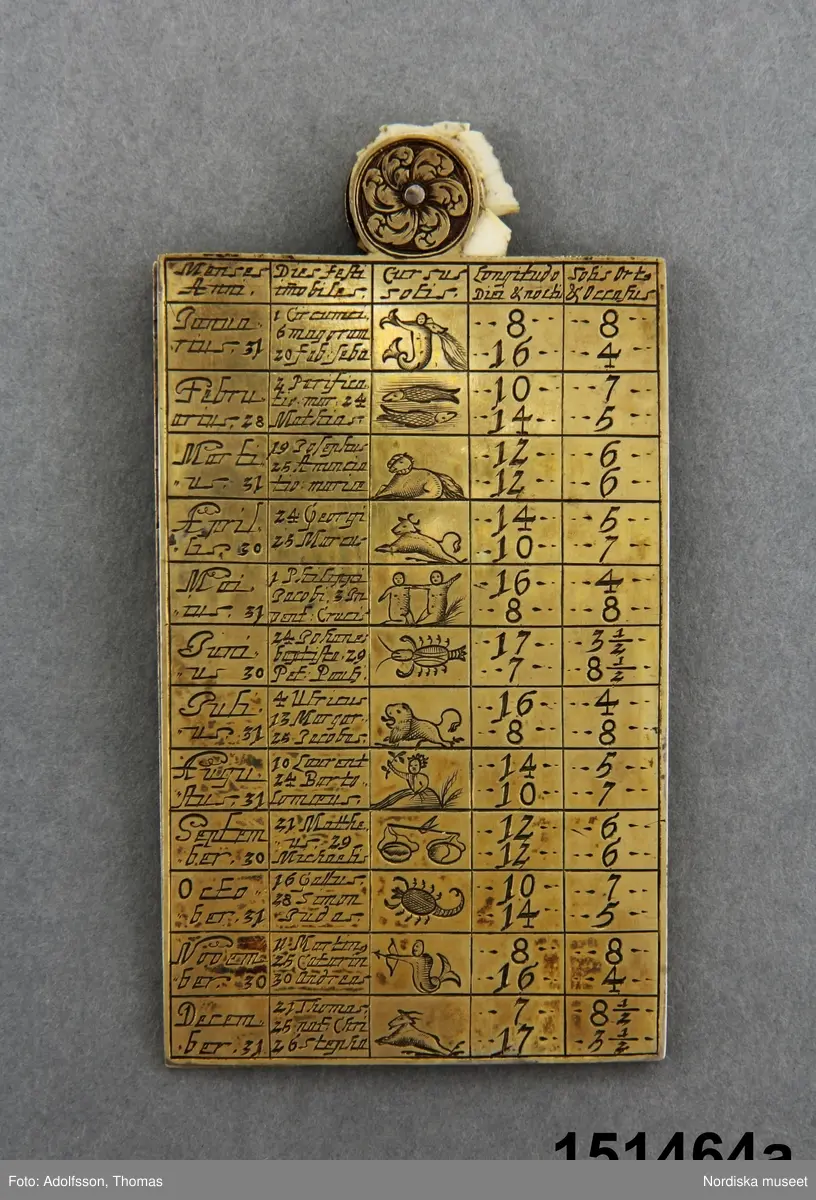 Menses Anni. Dies festi imobiles. Cursus solis. Longitudo Diei & nocti Solis Ort. & Occasus
Janua- rius. 31 1 Circumci. 6 magorum 20 Fab: Seba -8- -16- -8- -4-
Febru arius. 28 2 Purifica- tis mar. 24 Mathias. -10- -14- -7- -5-
Marti- us. 31 19 Josephus 25 Anuncia tio mariæ -12- -12- -6- -6-
April- lis. 30 24 Georgi 25 Marcus -14- -10- -5- -7-
Mai- us. 31 1 Philippi Jacobi, 3 In vent: Crucis -16- -8- -4- -8-
Juni- us 30 24 Johanes baptista. 29 Pet: Pauli. -17- -7- 3 1/2 8 1/2
Juli- us. 31 4 Ulricus 13 Margar- 25 Jacobus. -16- -8- -4- -8-
Augu- stus. 31 10 Laurent 24 Barto- lomeus. -14- -10- -5- -7-
Septem ber. 30 21 Matthe- us. 29 Michaelis -12- -12- -6- -6-
Octo- ber. 31 16 Gallus. 28 Simon Judas -10- -14- -7- -5-
Novem ber. 30 11 Martin, 25 Catarin 30 Andreas -8- -16- -8- -4-
Decem- ber. 31 21 Thomas. 25 nat: Chri 26 Stepha -7- -17- 8 1/2 3 1/2
151464a
Foto: Adolfsson, Thomas Nordiska museet